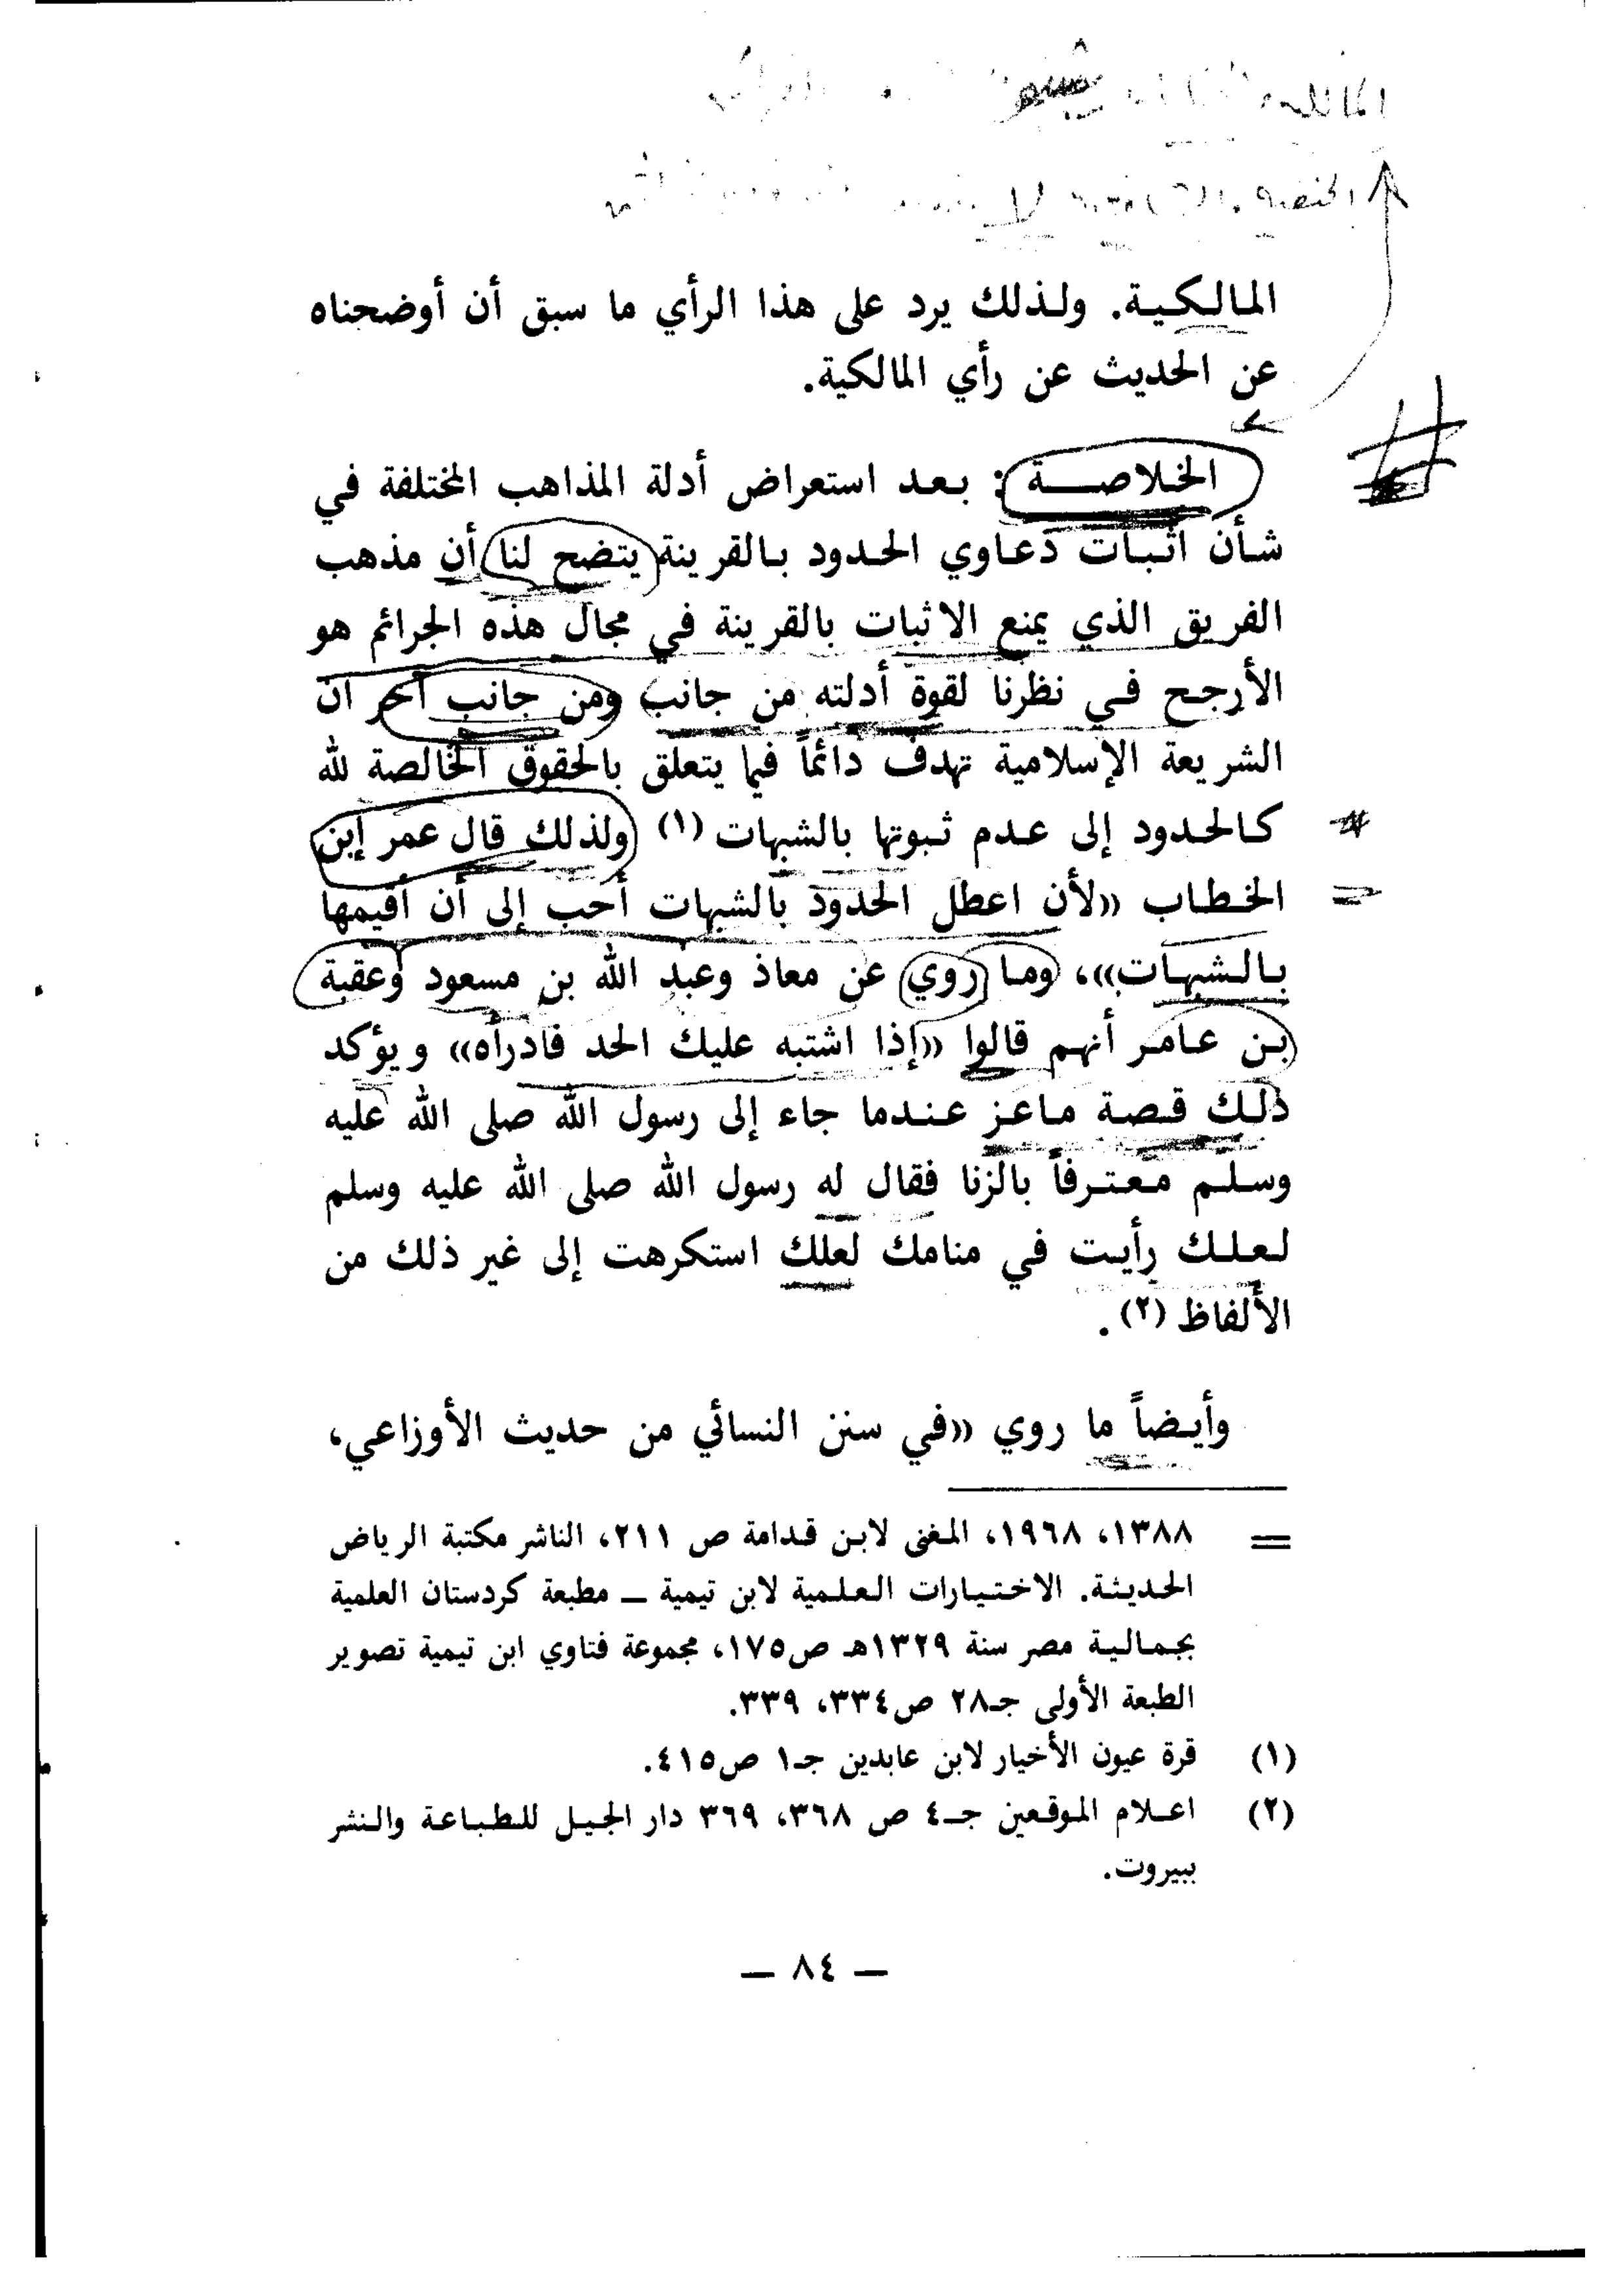 المالكية. ولذلك يرد على هذا الرأي ما سبق أن أوضحناه
عن الحديث عن رأي المالكية.
الخلاصة: بعد استعراض أدلة المذاهب المختلفة في
شأن اثبات دعاوي الحدود بالقرينة يتضح لنا أن مذهب
الفريق الذي يمنع الاثبات بالقرينة في مجال هذه الجرائم هو
الأرجح في نظرنا لقوة أدلته من جانب ومن جانب آخر ان
الشريعة الإسلامية تهدف دائماً فيما يتعلق بالحقوق الخالصة لله
كالحدود إلى عدم ثبوتها بالشبهات (١) ولذلك قال عمر إبن
الخطاب «لأن اعطل الحدود بالشبهات أحب إلى أن أقيمها
بالشبهات»، وما روي عن معاذ وعبد الله بن مسعود وعقبة
بن عامر أنهم قالوا «إذا اشتبه عليك الحد فادرأه» ويؤكد
ذلك قصة ماعز عندما جاء إلى رسول الله صلى الله عليه
وسلم معترفاً بالزنا فقال له رسول الله صلى الله عليه وسلم
لعلك رأيت في منامك لعلك استكرهت إلى غير ذلك من
الألفاظ (٢).
وأيضاً ما روي «في سنن النسائي من حديث الأوزاعي،
= ١٣٨٨، ١٩٦٨، المغنى لابن قدامة ص ٢١١، الناشر مكتبة الرياض
الحديثة. الاختيارات العلمية لابن تيمية ــ مطبعة كردستان العلمية
بجمالية مصر سنة ١٣٢٩هـ ص١٧٥، مجموعة فتاوي ابن تيمية تصوير
الطبعة الأولى جـ٢٨ ص٣٣٤، ٣٣٩.
(١) قرة عيون الأخيار لابن عابدين جـ١ ص٤١٥.
(٢) اعلام الموقعين جـ٤ ص ٣٦٨، ٣٦٩ دار الجيل للطباعة والنشر
ببيروت.
— ٨٤ —